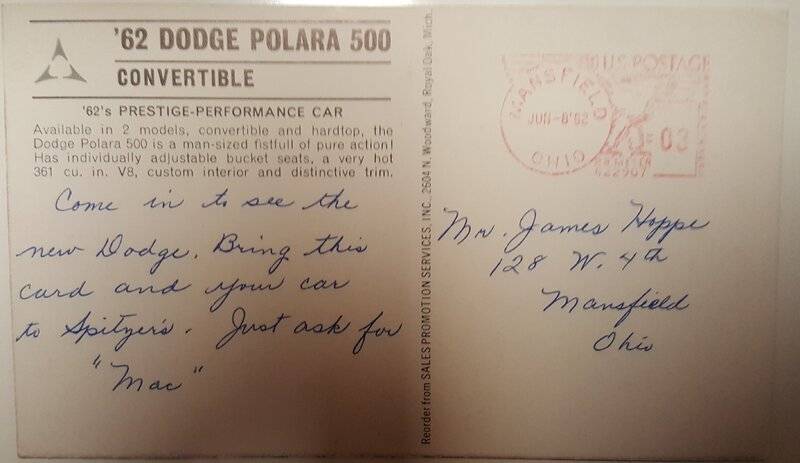 '62 DODGE POLARA 500
CONVERTIBLE
'62's PRESTIGE-PERFORMANCE CAR
Available in 2 models, convertible and hardtop, the
Dodge Polara 500 is a man-sized fistfull of pure action!
Has individually adjustable bucket seats, a very hot
361 cu. in. V8, custom interior and distinctive trim.
Come in to see the
new Dodge. Bring this
card and your car
to Spitzer's. Just ask for
"Mac"
Reorder from SALES PROMOTION SERVICES, INC., 2604 N. Woodward, Royal Oak, Mich.
MANSFIELD
JUN-8'62
OHIO
U.S. POSTAGE
03
Mr. James Hoppe
128 W. 4th
Mansfield
Ohio